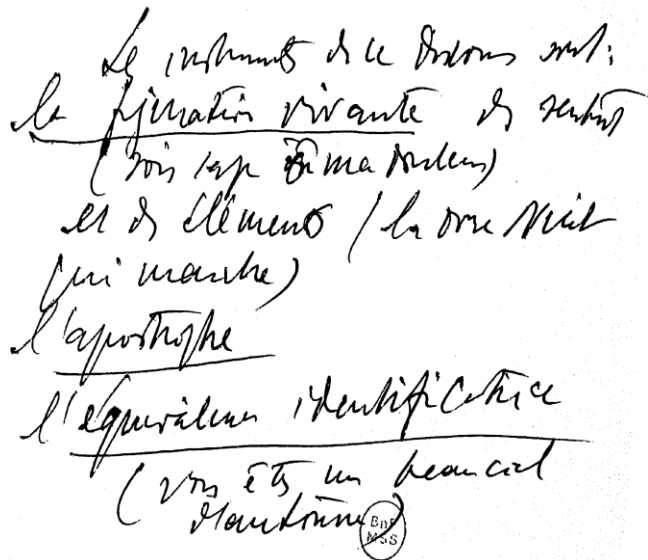 Les instruments de ce discours sont:
la figuration vivante des sentimts
(sois sage ô ma douleur)
et des éléments (la douce Nuit
qui marche)
l'apostrophe
l'équivalence identificatrice
(vous êtes un beau ciel
d'automne)
BnF
MSS